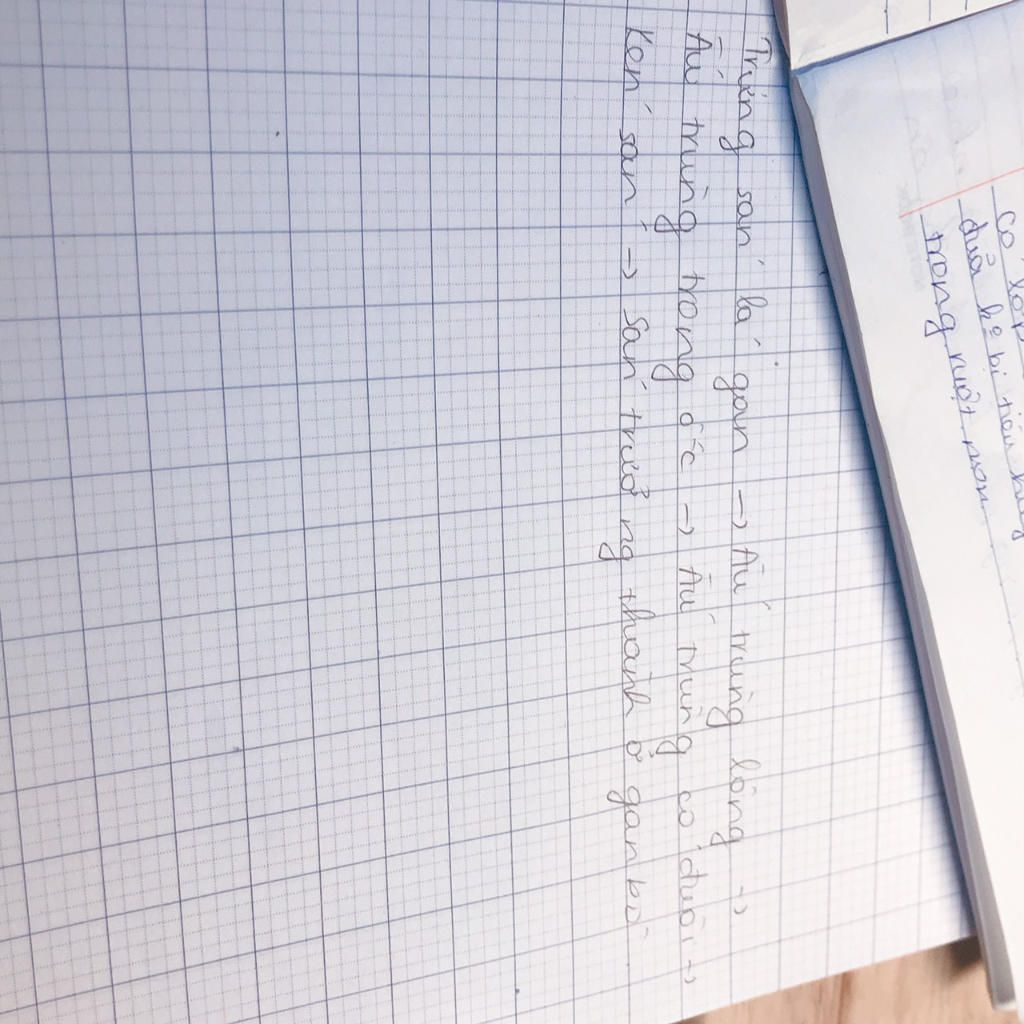 Trứng sán lá gan → Ấu trùng lông →
Ấu trùng trong ốc → Ấu trùng có đuôi →
Kén sán → sán trưởng thành ở gan bò.
có lớp
đuôi bị tiêu
trong ruột non